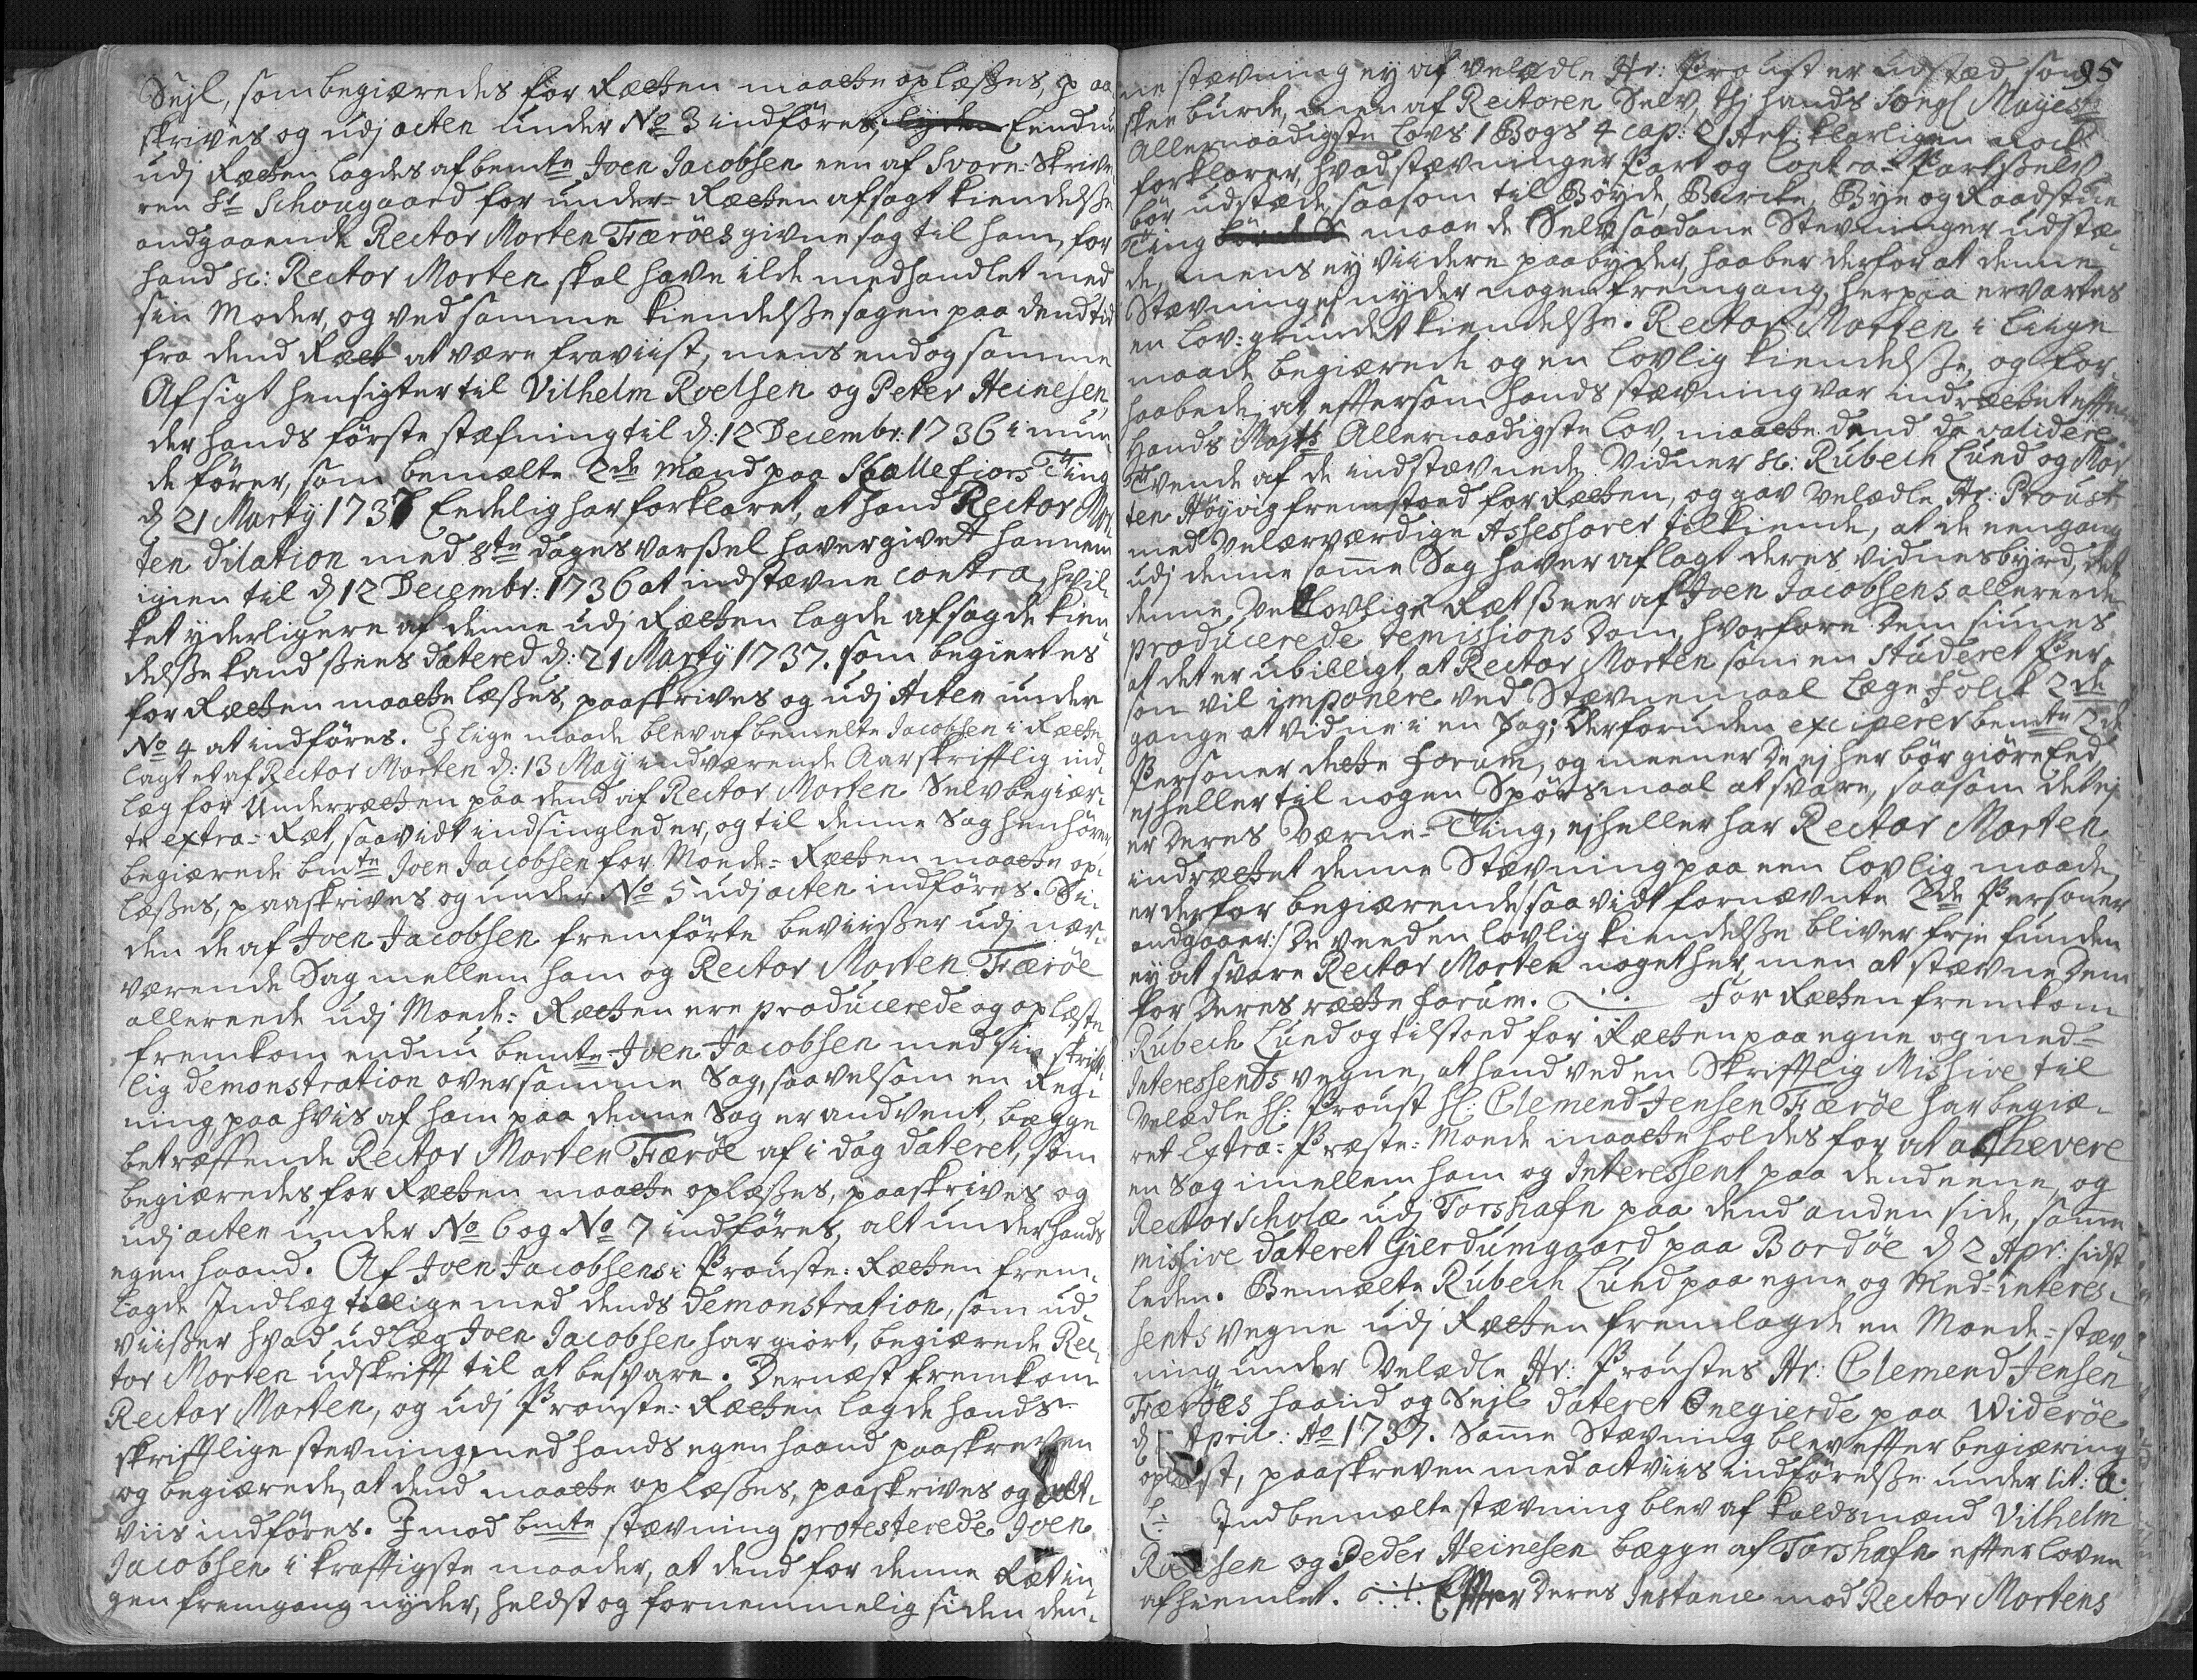 Sejl, som begiæredes for Rætten maatte oplæsses, paa
skrives og udj acten under No 3 indføres, lyden Eendnu
udj Rætten lagdes af bemte Joen Jacobsen een af Svorn-Skrive
ren Sr Schougaard for under-Rætten afsagt kiendelsse
andgaaende Rector Morten Færöes givne sag til ham, for
hand sc: Rector Morten skal have ilde medhandlet med
sin Moder, og ved samme kiendelsse sagen paa dend tid
fra dend Ræt at være fraviist, mens end og samme
Afsigt hensigter til Vilhelm Roelsen og Peter Heinesen,
der hands förste stefning til d: 12 Decembr: 1736 i mun
de förer, som bemælte 2de mænd paa Skallefiors Ting
d 21 Marty 1737 Eedelig har forklaret, at hand Rector Mor
ten dilation med 8te dages varssel haver givet hannem
igien til d 12 Decembr: 1736 at indstævne contra, hvil
ket yderligere af denne udj Rætten lagde afsagde kien
delsse kand ssees datered d: 21 Marty 1737. som begiertes
for Rætten maatte læsses, paaskrives og udj Acten under
No 4 at indföres. J lige maade blev af bemelte Jacobsen i Rætte
lagt et af Rector Morten d: 13 May indværende Aar skrifftlig ind
læg for Underrætten paa dend af Rector Morten Selv begiær
te extra-Ræt, saavidt indsingleder, og til denne Sag henhörer
begiærede bmte Joen Jacobsen for Moede-Rætten maatte op
læsses, paaskrives og under No 5 udj acten indföres. Si
den de af Joen Jacobsen fremförte beviisser udj nær
værende Sag mellem ham og Rector Morten Færöe
allereede udj Moede-Rætten ere producerede og oplæste
fremkom endnu bemte Joen Jacobsen med sin skrifft
lig demonstration over samme Sag, saavelsom en Reg
ning paa hvis af ham paa denne Sag er andvent, bægge
betræffende Rector Morten Færöe af i dag dateret, som
begiæredes for Rætten maatte oplæsses, paaskrives og
udj acten under No 6 og No 7 indföres, alt under hands
egen haand. Af Joen Jacobsens i Prouste-Rætten frem
lagde Jndlæg tillige med dends demonstration, som ud
viisser hvad udlæg Joen Jacobsen har giort, begiærede Rec
tor Morten udskrifft til at besvare. Dernæst fremkom
Rector Morten, og udj Prouste-Rætten lagde hands
skrifftlige stevning med hands egen haand paaskreven
og begiærede, at dend maatte oplæsses, paaskrives og Act
viis indföres. Jmod bmte stævning protesterede Joen
Jacobsen i krafftigste maader, at dend for denne Ræt in
gen fremgang nyder, heldst og fornemmelig siden den
95
ne stævning ej af velædle Hr: Proust er udstæd, som
skee burde, men af Rectoren Selv, thj hands Kongl Mayestts
Allernaadigste Lovs 1 Bogs 4 cap: 2 Art: klarligen nock
forklarer, hvad stævninger Part og Contra-Part sselv
bör udstæde, saasom til Böyde, Bircke, Bye og Raadstue
Ting maa de Selv saadane Stevninger udstæ
de, mens ej viidere paabyder, haaber derfor at denne
Stævning ej nyder nogen fremgang, herpaa ervartes
en Lov-grundet kiendelsse. Rector Morten i liige
maade begiærede og en lovlig kiendelsse, og for
haabede, at efftersom hands stævning var indrættet effter
Hands Maytts Allernaadigste Lov, maatte dend da validere
Tvende af de indstævnede Vidner sc: Rubech Lund og Mor
ten Höyvig fremstoed for Rætten, og gav Velædle Hr: Proust
med Velærværdige Assessorer tilkiende, at de een gang
udj denne same Sag haver aflagt deres vidnesbyrd, det
denne Velovlige Ræt sseer af Joen Jacobsens allereede
producerede remissions Dom, hvorfore Dem siunes
at det er ubilligt, at Rector Morten som en studeret Per
son vil imponere ved Stævnemaal Læge Folck 2de
gange at vidne i en Sag; Derforuden exciperer bemte 2de
Personer dette Forum, og meener De ej her bör giöre Eed,
ej heller til nogen Spörsmaal at svare, saasom det ej
er Deres Værne-Ting, ej heller har Rector Morten
indrættet denne Stævning paa een lovlig maade,
er derfor begiærende /: saavidt fornævnte 2de Personer
andgaaer :/ De veed en lovlig kiendelsse bliver frie funden
ej at svare Rector Morten noget her, men at stævne Dem
for Deres rætte Forum. For Rætten fremkom
Rubech Lund og tilstoed for Rætten paa egne og med-
Interessents vegne, at hand ved en Skrifftlig Missive til
Velædle Hr: Proust Hr: Clemend Jensen Færöe har begiæ
ret Extra-Præste-Moede maatte holdes for at ashevere
en Sag imellem ham og Interessent paa dend eene, og
Rector Scholæ udj Torshafn paa dend anden side, same
missive dateret Gierdumgaard paa Bordöe d 2 Apr: sidst
leden. Bemælte Rubech Lund paa egne og Med-interes
sents vegne udj Rætten fremlagde en Moede-stæv
ning under Velædle Hr: Proustes Hr: Clemend Jensen
Færöes haand og Sejl dateret Onegierde paa Wideröe
d April: Ao 1737. Same Stævning blev effter begiæring
oplæst, paaskreven med actviis indförelsse under lit: a.
Jndbemælte stævning blev af kaldsmænd Vilhelm
Roelsen og Peder Heinesen bægge af Torshafn effter loven
afhiemlet. Effter Deres Instance mod Rector Mortens